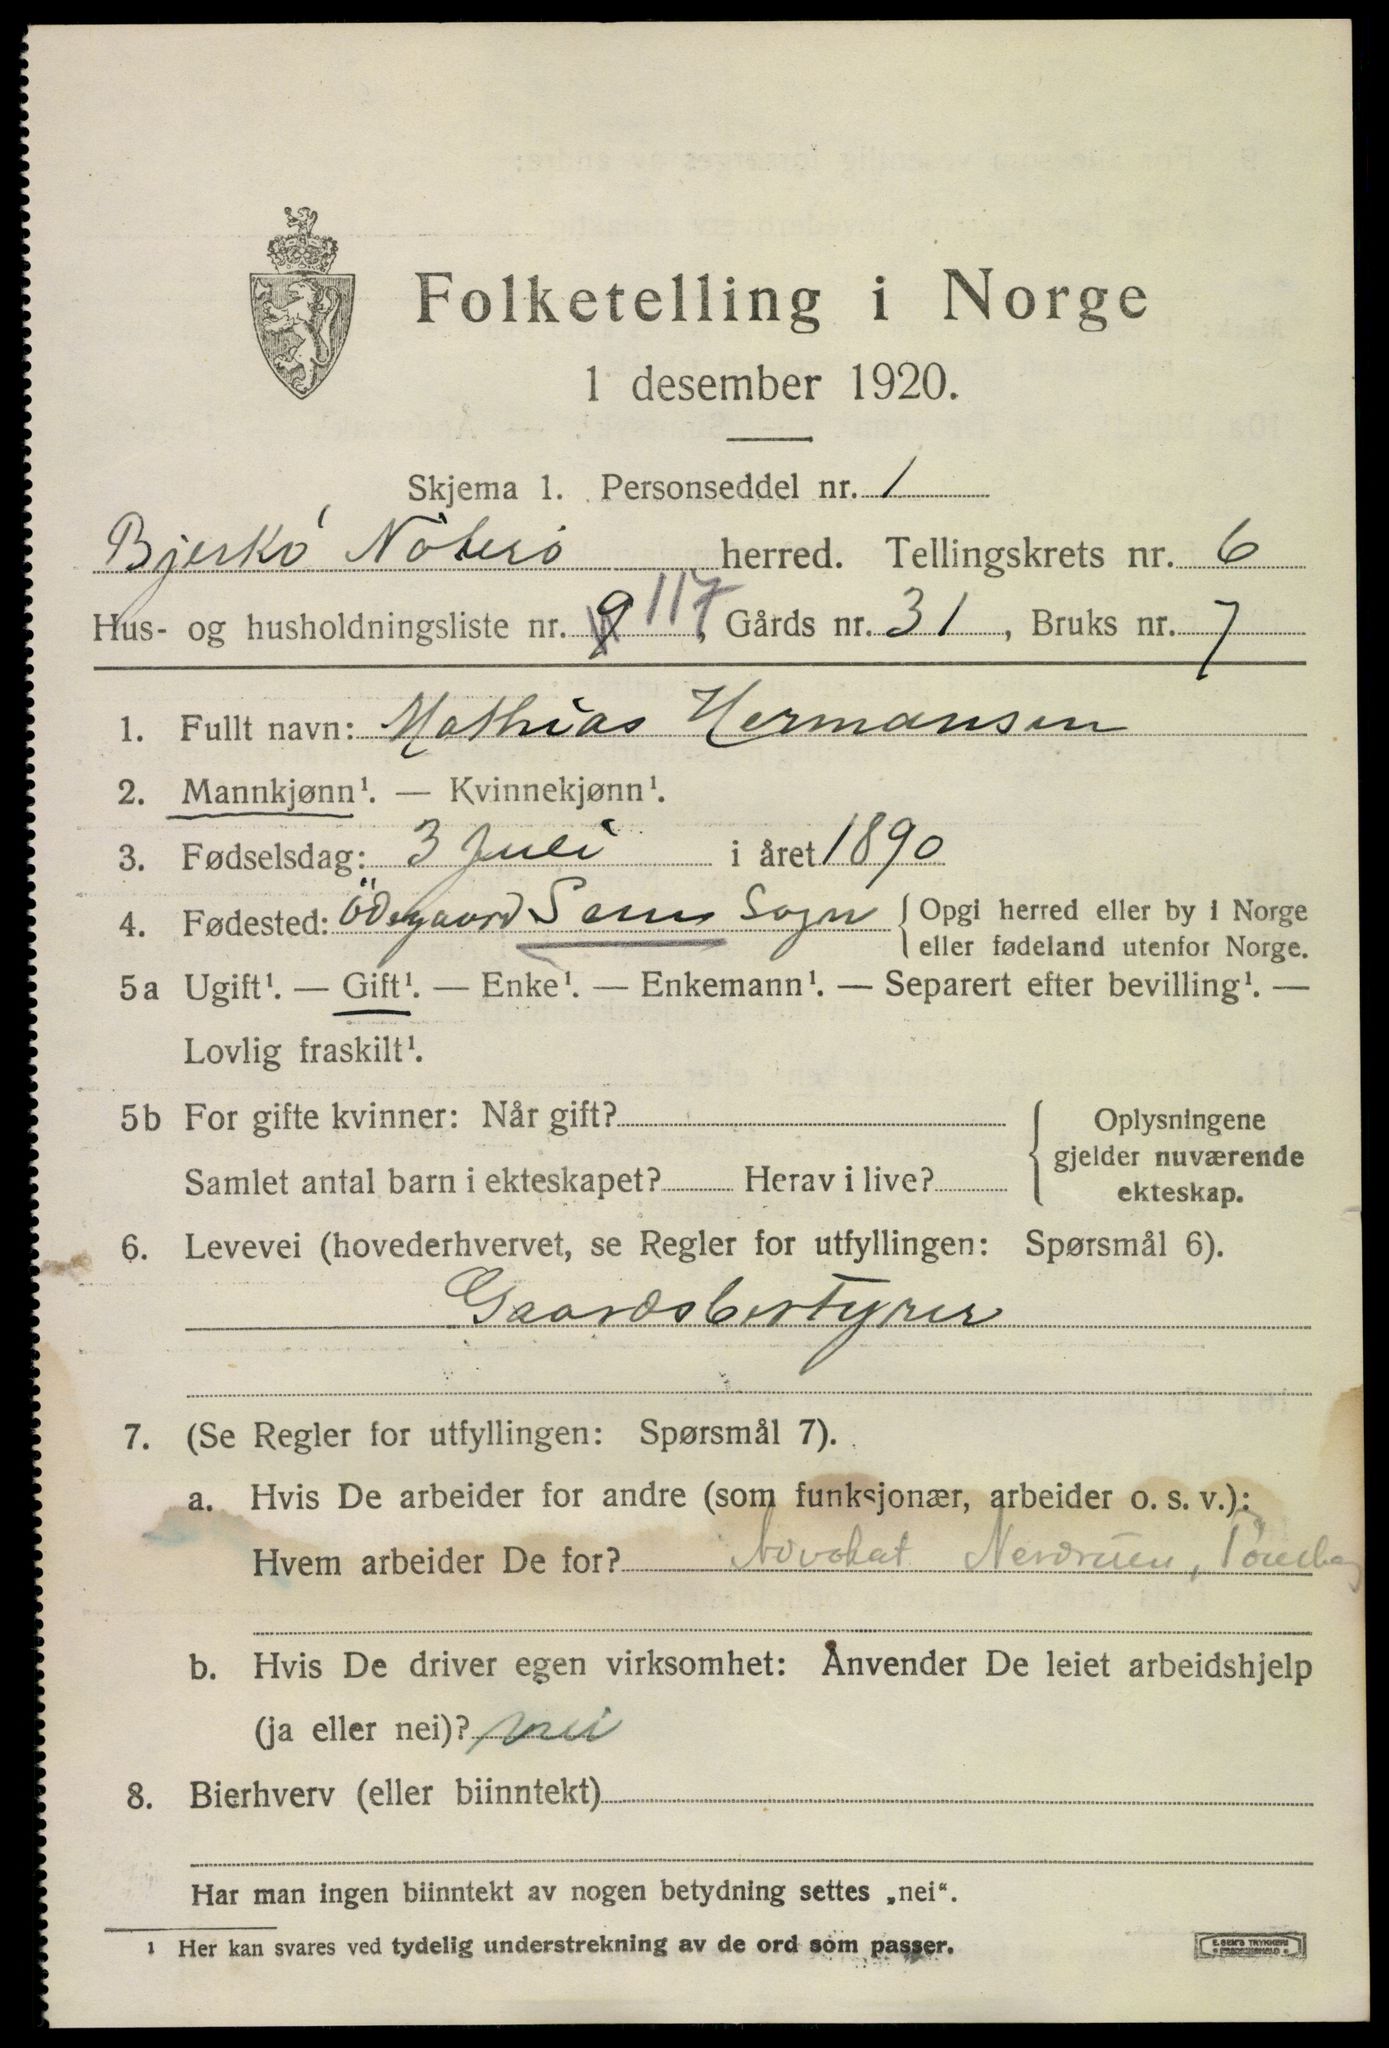 Folketelling i Norge
1 desember 1920.
Skjema 1. Personseddel nr. 1
Bjerkö Nöterö herred. Tellingskrets nr. 6
Hus- og husholdningsliste nr. 9 117, Gårds nr. 31, Bruks nr. 7
1. Fullt navn: Mathias Hermansen
2. Mannkjønn¹. — Kvinnekjønn¹.
3. Fødselsdag: 3 Juli i året 1890
4. Fødested: Ödegaard Sem Sogn { Opgi herred eller by i Norge
eller fødeland utenfor Norge.
5a Ugift¹. — Gift¹. — Enke¹. — Enkemann¹. — Separert efter bevilling¹. —
Lovlig fraskilt¹.
5b For gifte kvinner: Når gift?
Samlet antal barn i ekteskapet? Herav i live?
Oplysningene
gjelder nuværende
ekteskap.
6. Levevei (hovederhvervet, se Regler for utfyllingen: Spørsmål 6).
Gaardsbestyrer
7. (Se Regler for utfyllingen: Spørsmål 7).
a. Hvis De arbeider for andre (som funksjonær, arbeider o. s. v.):
Hvem arbeider De for? Advokat Nerdruen, Tönsberg
b. Hvis De driver egen virksomhet: Anvender De leiet arbeidshjelp
(ja eller nei)? nei
8. Bierhverv (eller biinntekt)
Har man ingen biinntekt av nogen betydning settes „nei“.
¹ Her kan svares ved tydelig understrekning av de ord som passer.
E. SEM'S TRYKKERI
FREDRIKSHALD